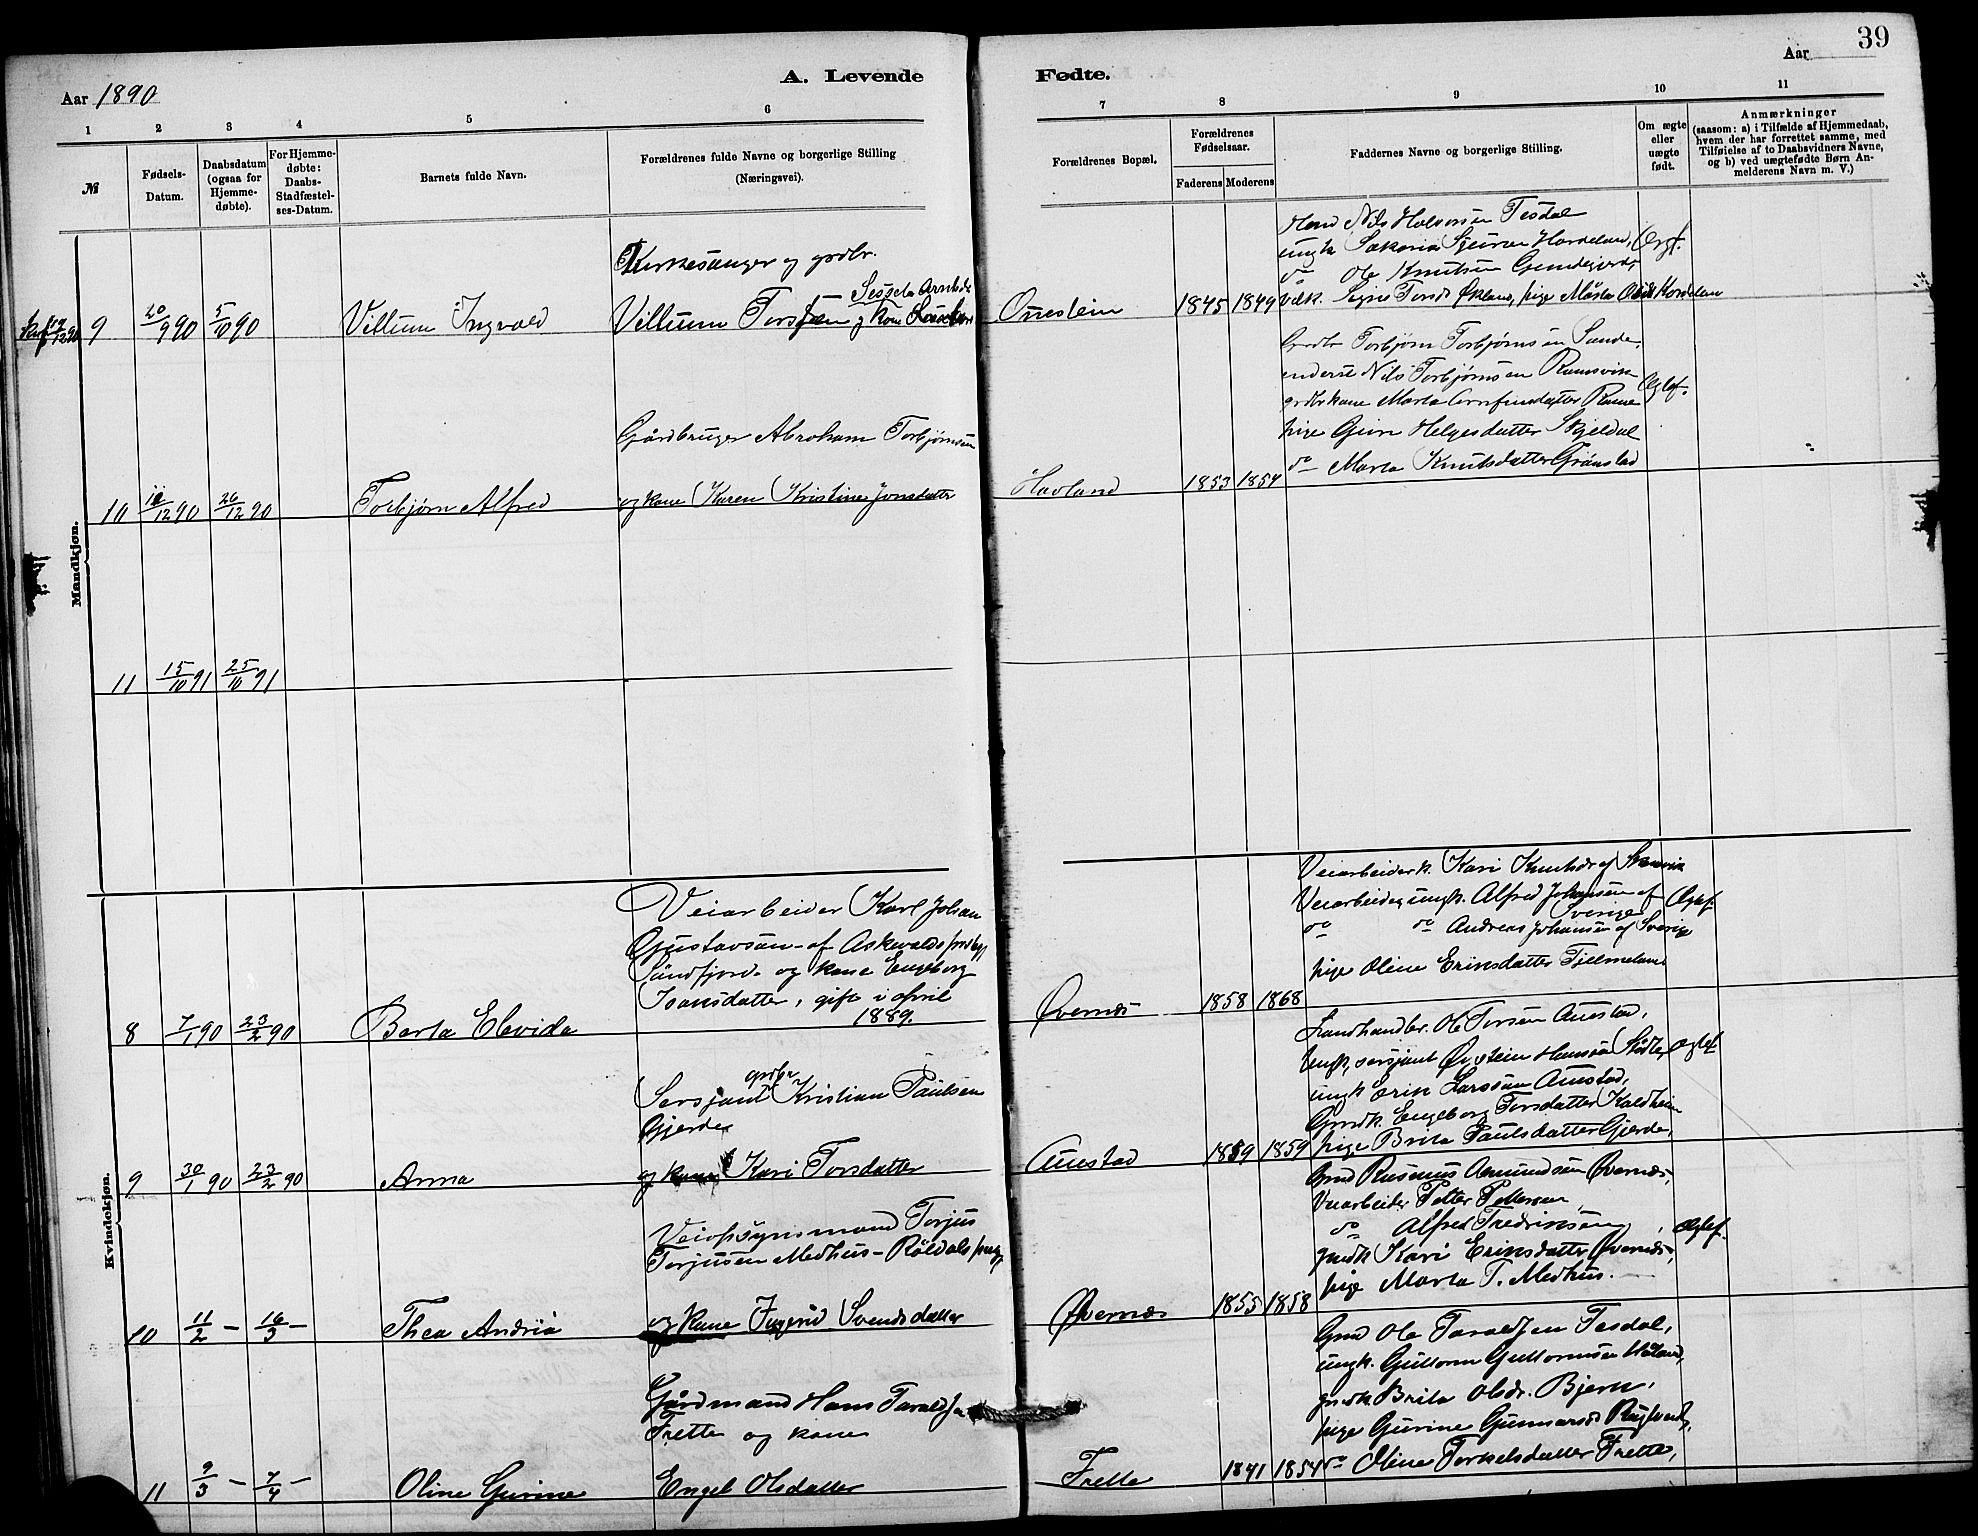 39
Aar 1890
A. Levende Fødte.
Aar
1 2 3 4 5 6 7 8 9 10 11
№
Fødsels-Datum.
Daabsdatum (ogsaa for Hjemme-døbte).
For Hjemme-døbte: Daabs-Stadfæstel-ses-Datum.
Barnets fulde Navn.
Forældrenes fulde Navne og borgerlige Stilling (Næringsvei).
Forældrenes Bopæl.
Forældrenes Fødselsaar.
Faderens Moderens
Faddernes Navne og borgerlige Stilling.
Om ægte eller uægte født.
Anmærkninger
(saasom: a) i Tilfælde af Hjemmedaab,
hvem der har forrettet samme, med
Tilføielse af to Daabsvidners Navne,
og b) ved uægtefødte Børn An-
melderens Navn m. V.)
Mandkjøn.
9 20/9 90 5/10 90 Villum Ingvald
Kirkesanger og grdbr.
Villum Torsen og kone
Orrestein 1845 1849
Nils Halvorsen Tesdal
ungk Sakarias Hordeland,
do Ole Knutsen
pige Marta
10 /12 90 26/12 90 Torbjørn Alfred
Gårdbruger Abraham Torbjørnsen
og kone Karen Kristine Jonsdatter
Havland 1853 1854
Grdbr Torbjørn Torbjørnsen Sande,
Nils Torbjørnsen Ramsvik
grdbrkone Marta Arnfinsdatter
pige Guri Helgesdatter Skjeldal
do Marta Knutsdatter Grønstad
Ægtef.
11 15/10 91 25/10 91
Kvindekjøn.
8 7/1 90 23/2 90 Berta Elevida
Veiarbeider Karl Johan
Gustavsøn af Askevolds prstgj
Søndfjord og kone Engeborg
Isaksdatter, gift i april
1889.
Øvernes 1858 1868
Veiarbeiderk. Kari Knutsdr af
Veiarbeider ungk. Alfred Johansen af
Sverige
do do Andreas Johansen af Sverige
pige Oline Eriksdatter Fjellmeland
Ægtef
9 30/1 90 23/2 90 Anna
Sersjant grdbr Kristian Paulsen
Gjerde
og kone Kari Torsdatter
Austad 1859 1859
Landhandler. Ole Torsen Austad,
ungk, sersjant Øystein Hansen
ungk Erik Larssen Austad,
Grdk. Engeborg Torsdatter Kaldheim
pige Brita Paulsdatter Gjerde,
Ægtef
10 11/2 – 16/3 – Thea Andria
Veiopsynsmand Torjus
Torjussen Medhus – Röldals prstgj
og kone Ingerid Svendsdatter
Øvernes 1855 1858
Gmd Rasmus Amundsen Øvernes,
Veiarbeider Petter Pettersen
do Alfred Fredriksen,
grdk Kari Eriksdatter Øvernes,
pige Marta T. Medhus.
Ægtef.
11 9/3 – 7/4 – Oline Gurine
Gårdmand Hans Taraldsen
Frette og kone
Engel Olsdatter
Frette 1841 1854
Gmd Ole Taraldsen Tesdal,
ungk. Guttorm Guttormsen
grdk Brita Olsdr. Bjern,
pige Gurine Gunnarsd.
do Oline Torkelsdatter Frette,